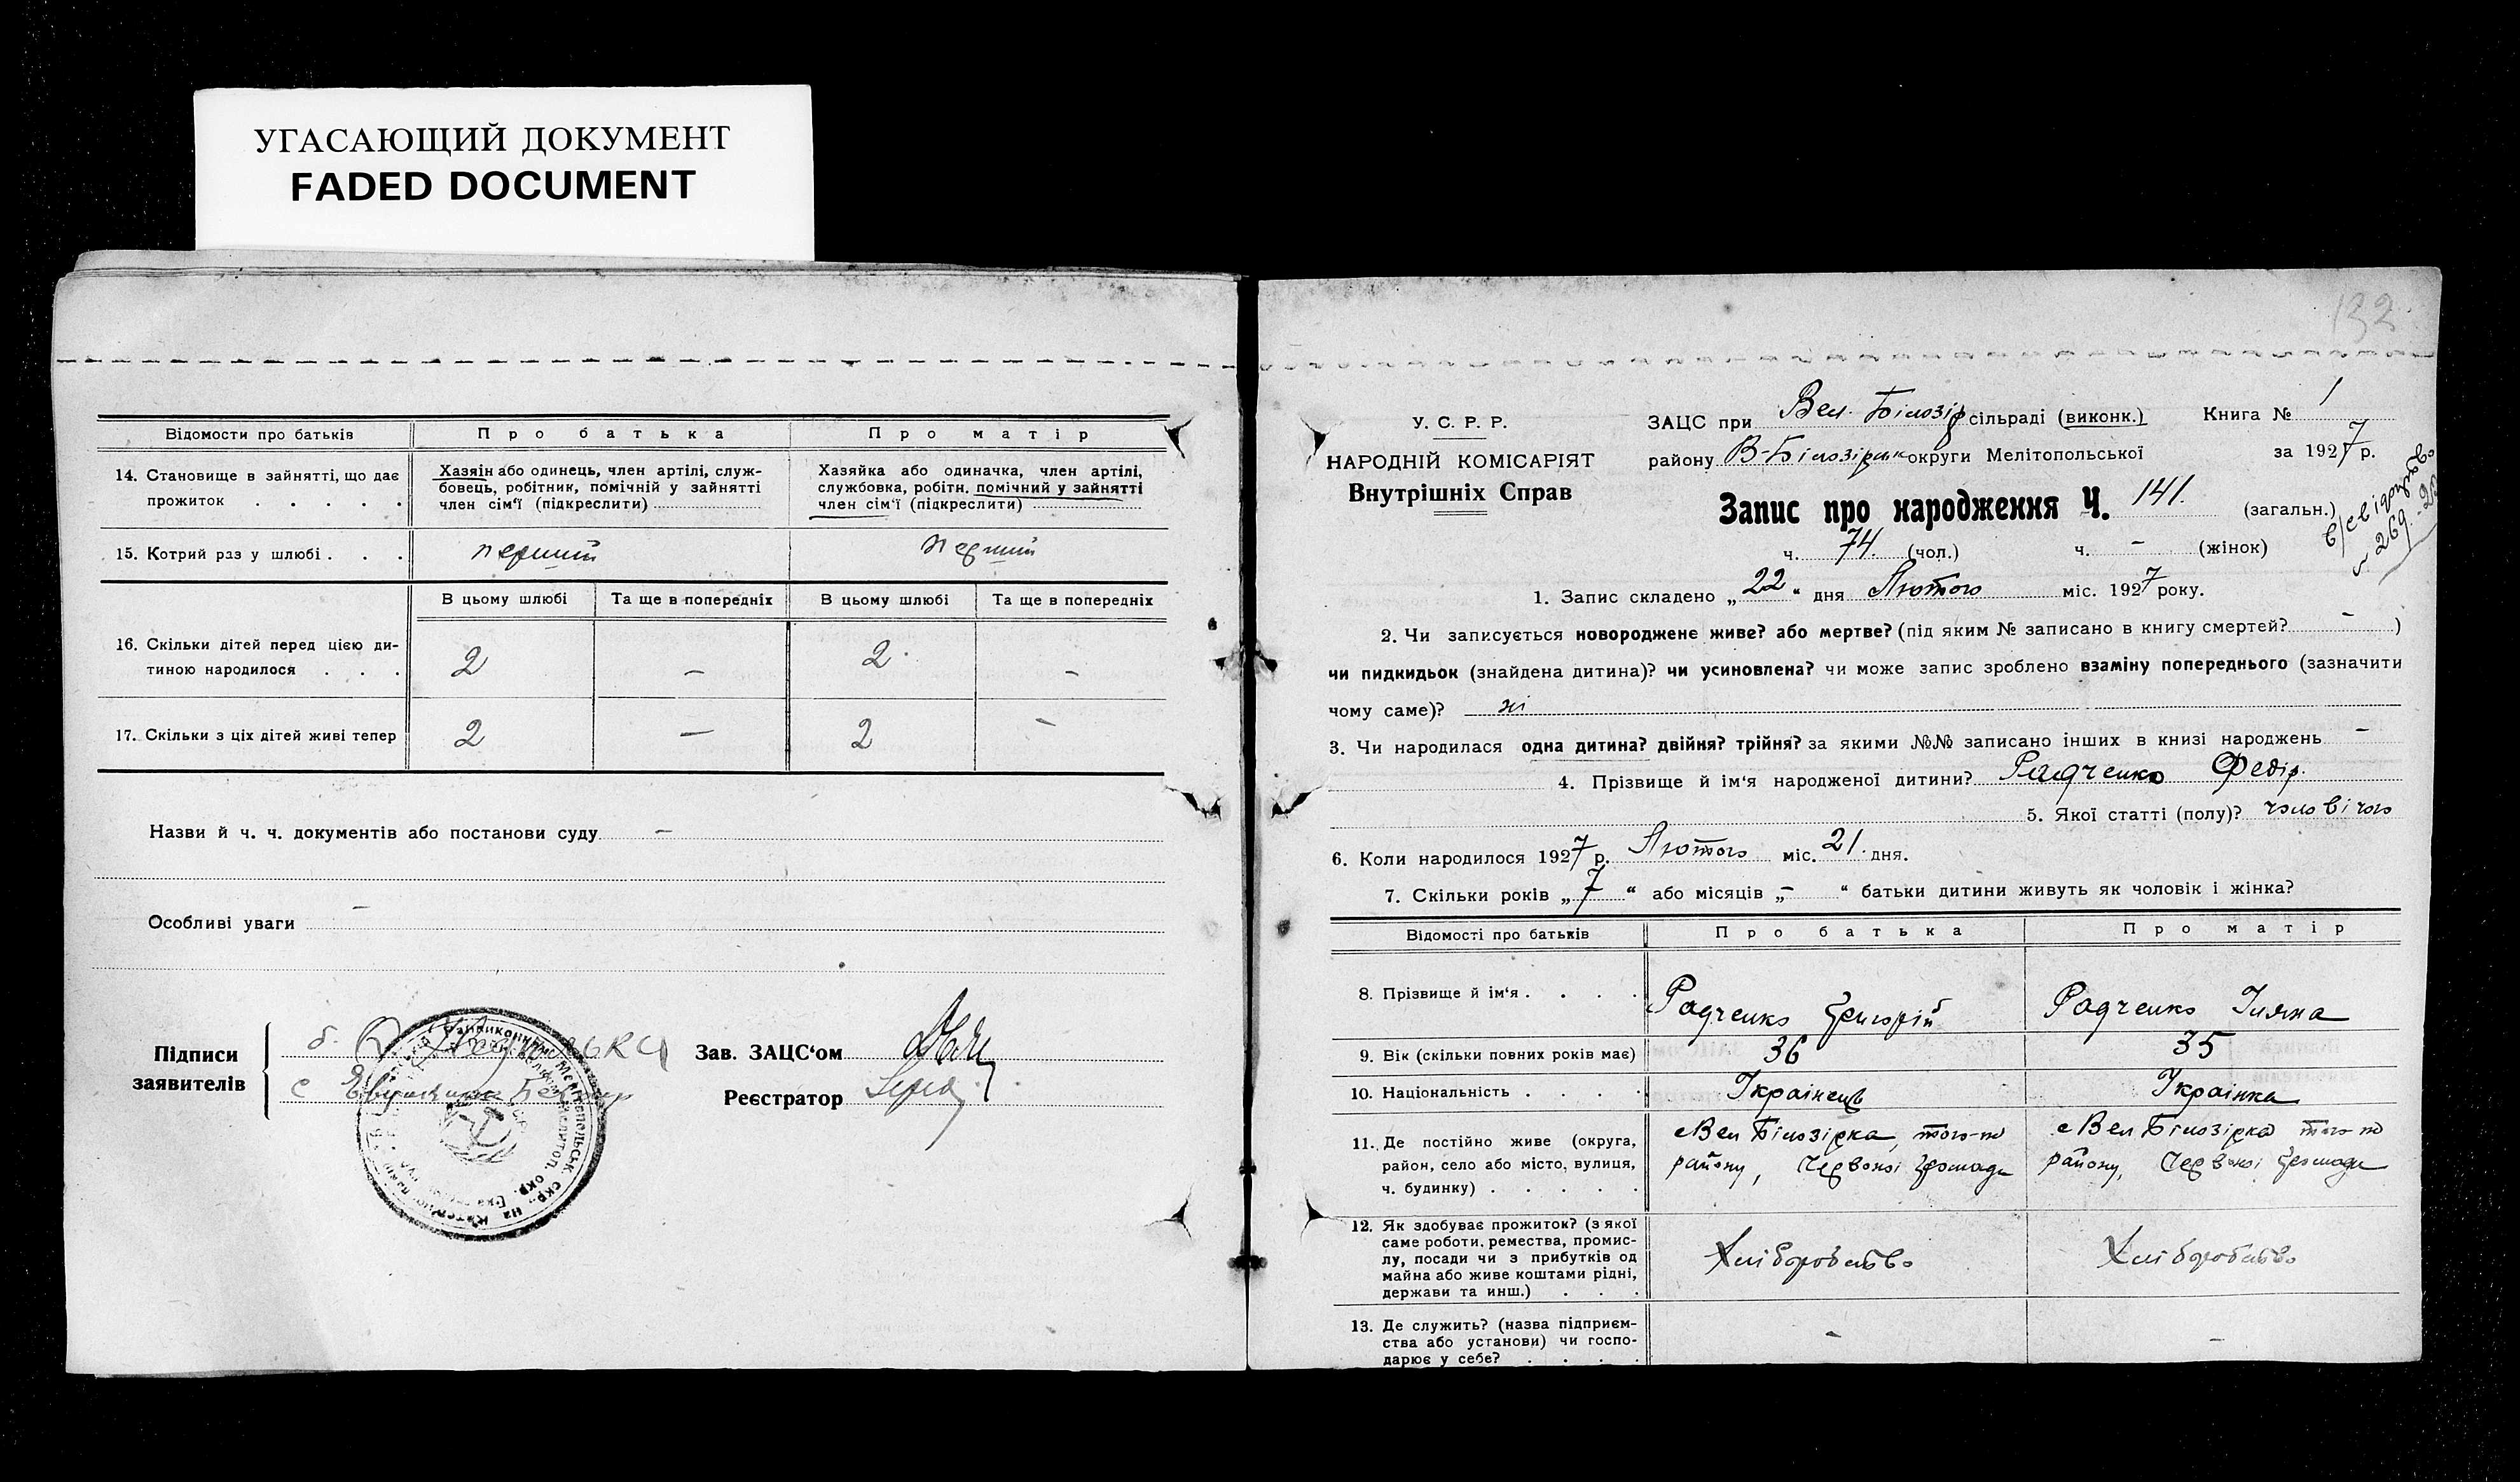 УГАСАЮЩИЙ ДОКУМЕНТ
FADED DOCUMENT
Відомости про батьків
Про батька
Про матір
14. Становище в зайнятті, що дає
прожиток . . . . .
Хазяін або одинець, член артілі, служ-
бовець, робітник, помічній у зайнятті
член сім'ї (підкреслити)
Хазяйка або одиначка, член артілі,
службовка, робітн. помічний у зайнятті
член сім'ї (підкреслити)
15. Котрий раз у шлюбі . . .
перший
перший
В цьому шлюбі
Та ще в попередніх
В цьому шлюбі
Та ще в попередніх
16. Скільки дітей перед цією ди-
тиною народилося . . .
2 – 2 –
17. Скільки з ціх дітей живі тепер
2 – 2 –
Назви й ч. ч. документів або постанови суду –
Особливі уваги –
Підписи
заявителів
б.
с
Зав. ЗАЦС'ом
Реєстратор
132
У. С. Р. Р.
НАРОДНІЙ КОМІСАРІЯТ
Внутрішніх Справ
ЗАЦС при Вел. Білозір сільраді (виконк.) Книга № 1
району В-Білозірск округи Мелітопольської за 1927 р.
Запис про народження Ч. 141. (загальн.)
ч. 74. (чол.) ч. – (жінок)
269
1. Запис складено „22“ дня Лютого міс. 1927 року.
2. Чи записується новороджене живе? або мертве? (під яким № записано в книгу смертей? – )
чи пидкидьок (знайдена дитина)? чи усиновлена? чи може запис зроблено взаміну попереднього (зазначити
чому саме)? ні
3. Чи народилася одна дитина? двійня? трійня? за якими №№ записано інших в книзі народжень –
4. Прізвище й ім'я народженої дитини? Радченко Федір.
5. Якої статті (полу)? чоловічого
6. Коли народилося 1927 р. Лютого міс. 21. дня.
7. Скільки років „7“ або місяців „–“ батьки дитини живуть як чоловік і жінка?
Відомості про батьків
Про батька
Про матір
8. Прізвище й ім'я . . . .
Радченко Григорій
Радченко Уляна
9. Вік (скільки повних років має)
36
35
10. Національність . . . .
Українець
Українка
11. Де постійно живе (округа,
район, село або місто, вулиця,
ч. будинку) . . . . .
с Вел Білозірка, того-по
району, Червоної Громади
с Вел Білозірка того по
району, Червоної Громади
12. Як здобуває прожиток? (з якої
саме роботи, ремества, промис-
лу, посади чи з прибутків од
майна або живе коштами рідні,
держави та инш.) . . .
Хліборобство
Хліборобство
13. Де служить? (назва підприєм-
ства або установи) чи госпо-
дарює у себе? . . . .
–
–